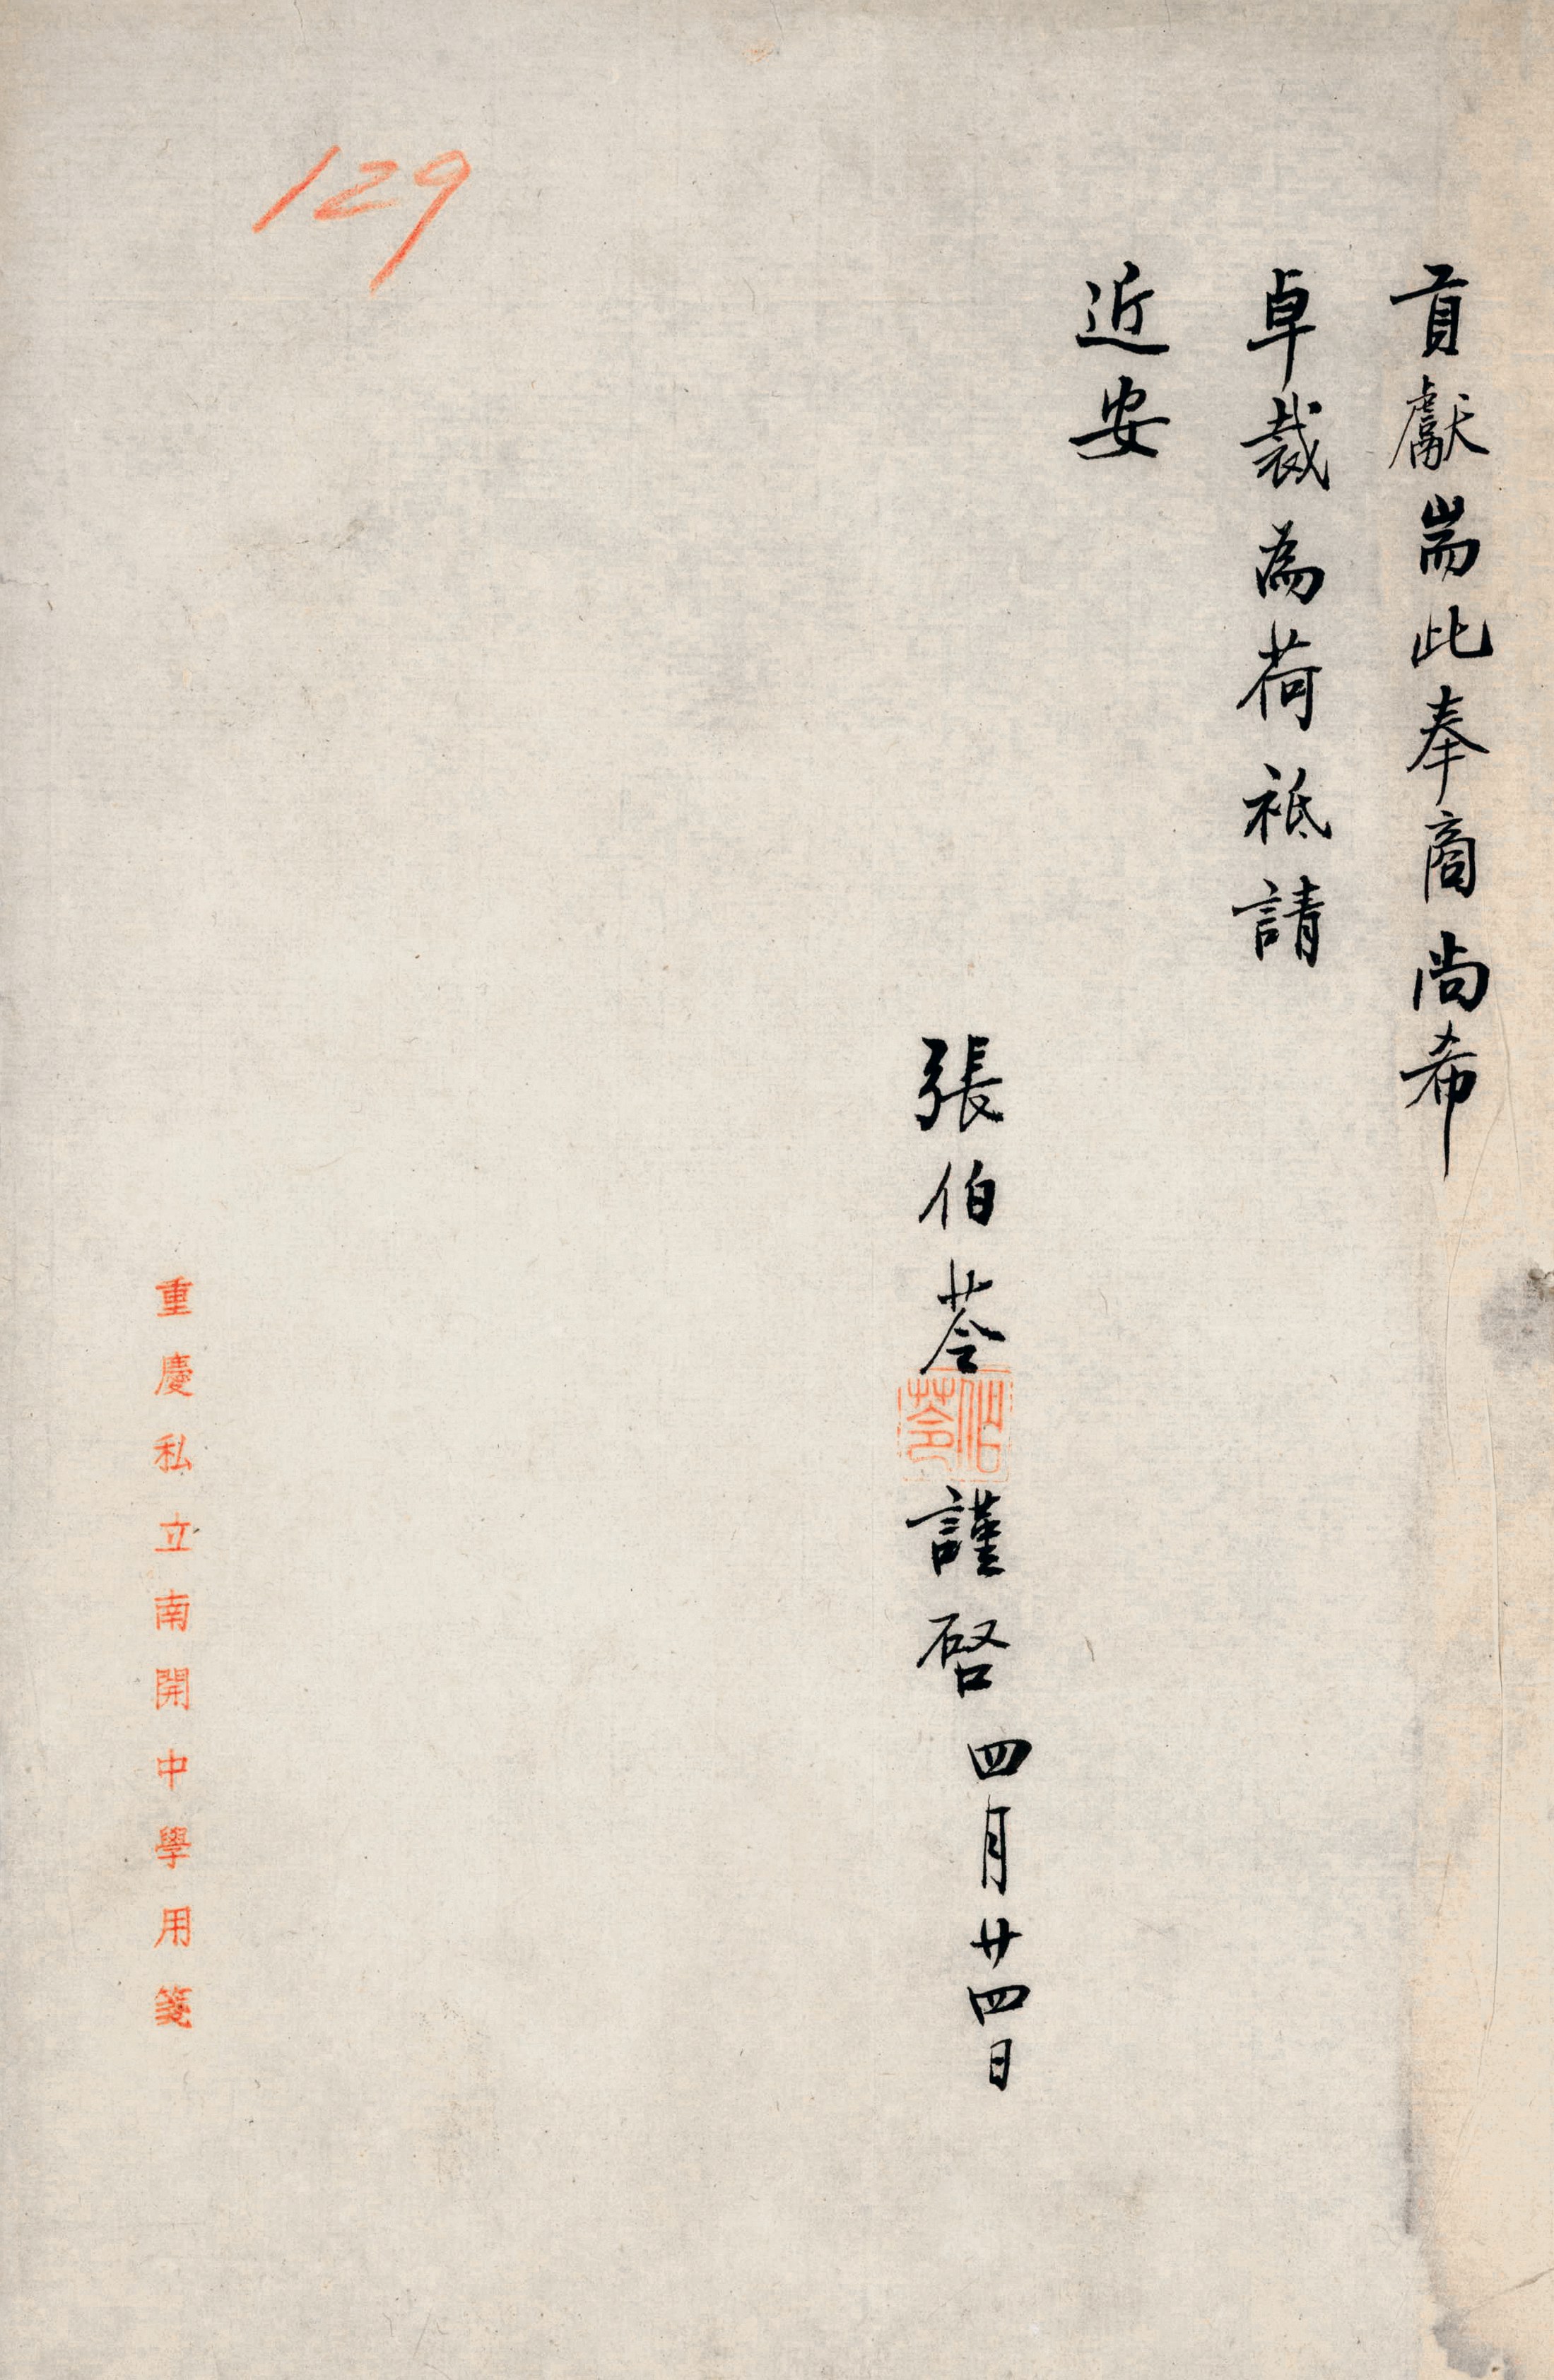 貢獻耑此奉商尚希
卓裁為荷祗請
近安
張伯苓謹啓四月廿四日
伯苓
129
重慶私立南開中學用箋